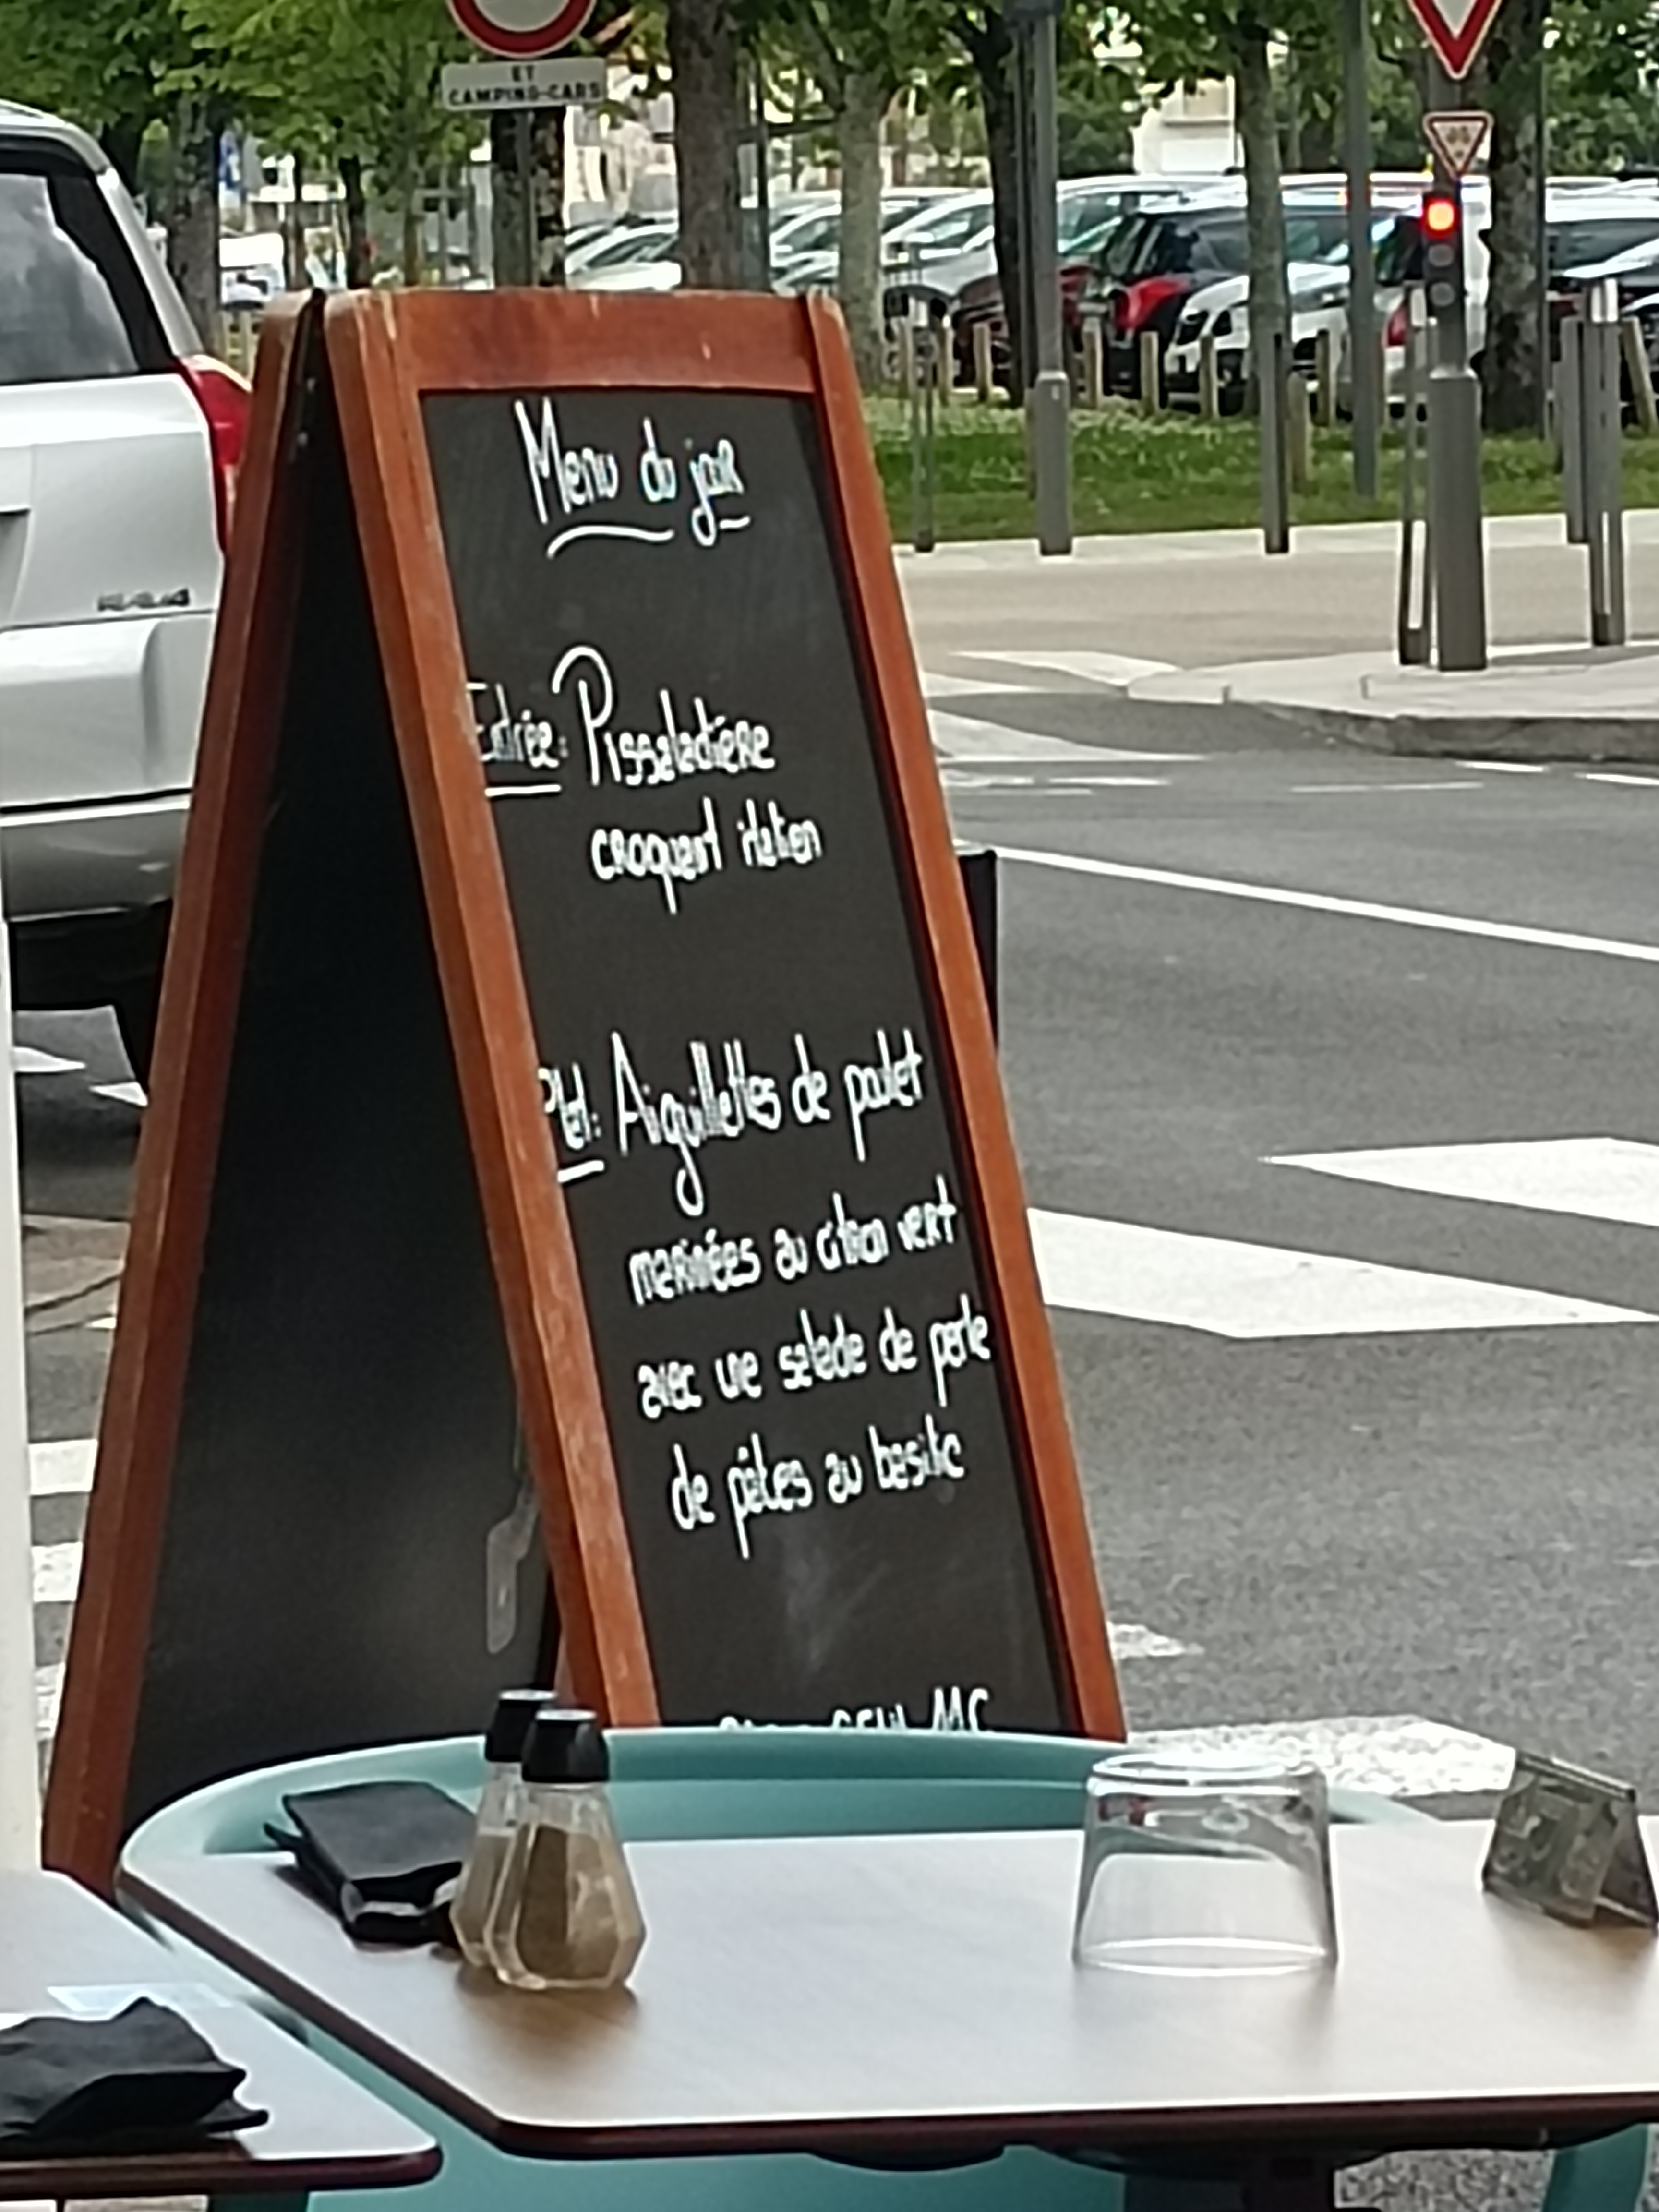 ET
CAMPING-CARS
RAV4
Menu du jour
Entrée: Pissaladière
croquant italien
Plat: Aiguillettes de poulet
marinées au citron vert
avec une salade de perle
de pâtes au basilic